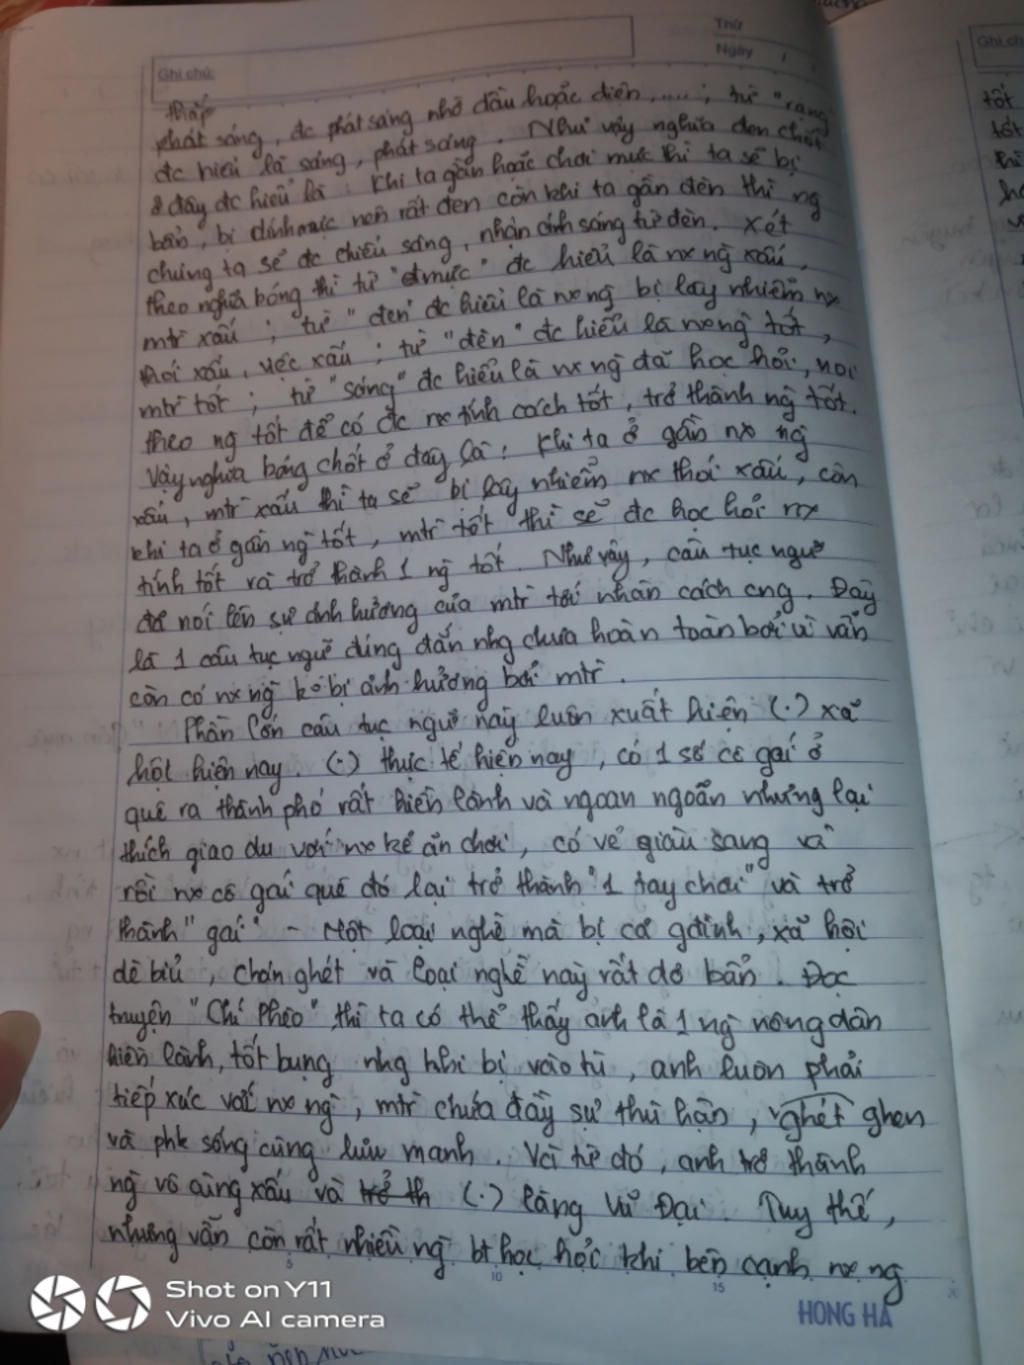 Thứ
Ngày
Ghi chú:
thắp
phát sáng, đc phát sáng nhờ dầu hoặc điện,....; từ "rạng
đc hiểu là sáng, phát sáng. Như vậy nghĩa đen chốt
ở đây đc hiểu là: Khi ta gần hoặc chơi mực thì ta sẽ bị
bẩn, bị dính mực nên rất đen còn khi ta gần đèn thì ng
chúng ta sẽ đc chiếu sáng, nhận ánh sáng từ đèn. Xét
theo nghĩa bóng thì từ "mực" đc hiểu là nx ng xấu,
mtr xấu; từ "đen" đc hiểu là nx ng bị lây nhiễm nx
thói xấu, việc xấu; từ "đèn" đc hiểu là nx ng tốt,
mtr tốt; từ "sáng" đc hiểu là nx ng đã học hỏi, noi
theo ng tốt để có đc nx tính cách tốt, trở thành ng tốt.
Vậy nghĩa bóng chốt ở đây là: Khi ta ở gần nx ng
xấu, mtr xấu thì ta sẽ bị lây nhiễm nx thói xấu, còn
khi ta ở gần ng tốt, mtr tốt thì sẽ đc học hỏi nx
tính tốt và trở thành 1 ng tốt. Như vậy, câu tục ngữ
đã nói lên sự ảnh hưởng của mtr tới nhân cách cng. Đây
là 1 câu tục ngữ đúng đắn nhg chưa hoàn toàn bởi vì vẫn
còn có nx ng ko bị ảnh hưởng bởi mtr.
Phần lớn câu tục ngữ này luôn xuất hiện (.) xã
hội hiện nay. (.) thực tế hiện nay, có 1 số cô gái ở
quê ra thành phố rất hiền lành và ngoan ngoãn nhưng lại
thích giao du với nx kẻ ăn chơi, có vẻ giàu sang và
rồi nx cô gái quê đó lại trở thành "1 tay chơi" và trở
thành "gái" - Một loại nghề mà bị cả gđình, xã hội
dè bỉu, chán ghét và loại nghề này rất dơ bẩn. Đọc
truyện "Chí Phèo" thì ta có thể thấy anh là 1 ng nông dân
hiền lành, tốt bụng nhg khi bị vào tù, anh luôn phải
tiếp xúc với nx ng, mtr chứa đầy sự thù hận, ghét ghen
và phk sống cùng lưu manh. Và từ đó, anh trở thành
ng vô cùng xấu và trở th (.) làng Vũ Đại. Tuy thế,
nhưng vẫn còn rất nhiều ng bt học hỏi khi bên cạnh nx ng
5
10
15
HONG HA
Shot on Y11
Vivo AI camera